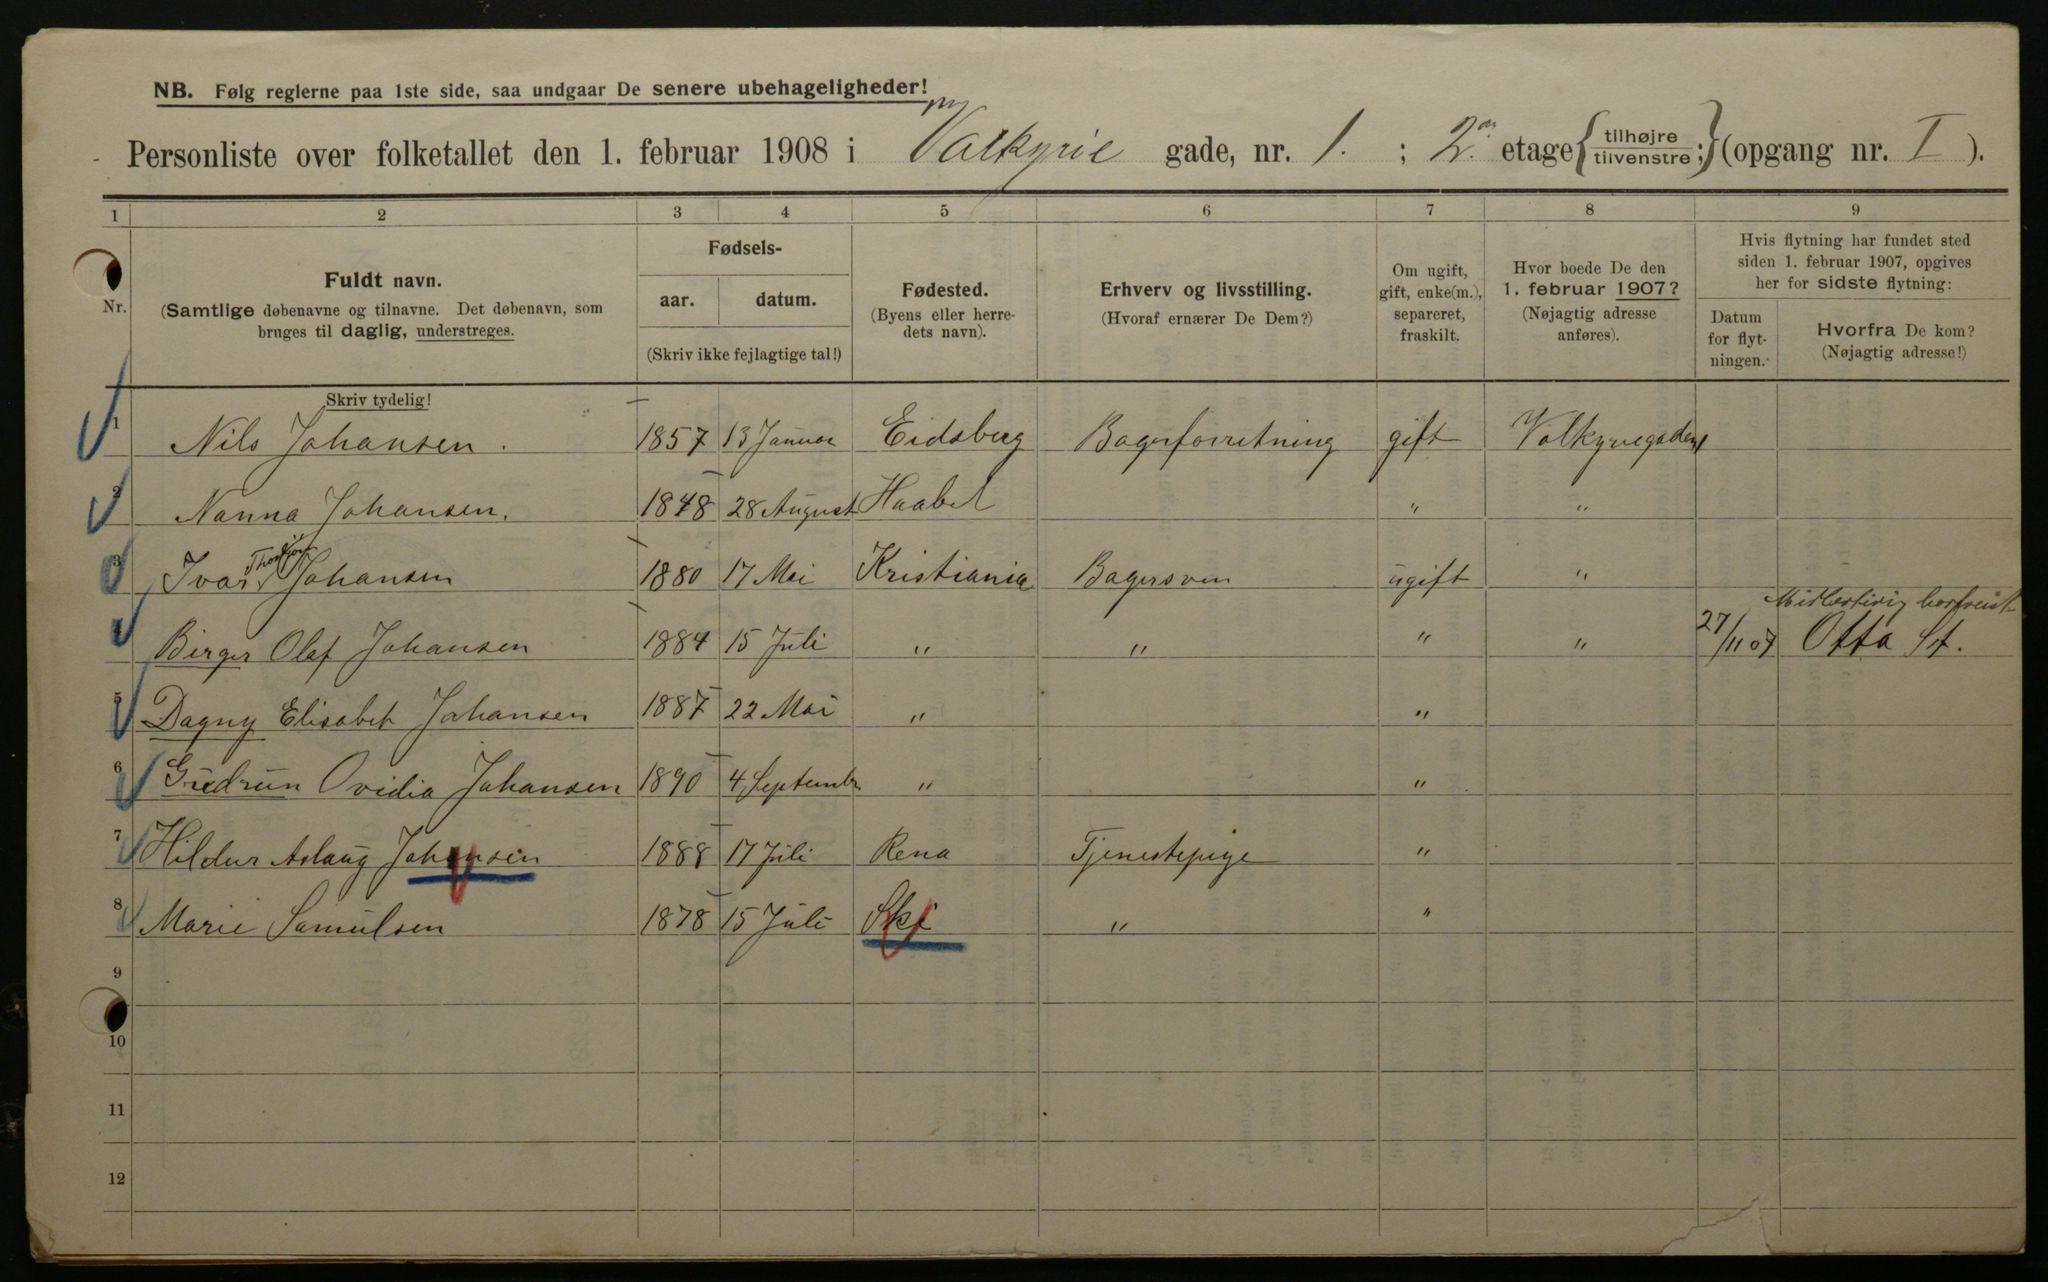 NB. Følg reglerne paa 1ste side, saa undgaar De senere ubehageligheder!
Personliste over folketallet den 1. februar 1908 i Valkyrie gade, nr. 1. ; 2. etage { tilhøjre tilvenstre; } (opgang nr. I ).
1 2 3 4 5 6 7 8 9
Nr.
Fuldt navn.
(Samtlige døbenavne og tilnavne. Det døbenavn, som
bruges til daglig, understreges.
Skriv tydelig!
Fødsels-
aar. datum.
(Skriv ikke fejlagtige tal!)
Fødested.
(Byens eller herre-
dets navn).
Erhverv og livsstilling.
(Hvoraf ernærer De Dem?)
Om ugift,
gift, enke(m.),
separeret,
fraskilt.
Hvor boede De den
1. februar 1907?
(Nøjagtig adresse
anføres).
Hvis flytning har fundet sted
siden 1. februar 1907, opgives
her for sidste flytning:
Datum
for flyt-
ningen.
Hvorfra De kom?
(Nøjagtig adresse!)
1 Nils Johansen. 1857 13 Januar Eidsberg Bagerforretning gift Valkyriegaden 1
2 Nanna Johansen. 1848 28 August Haabøl " "
3 Ivar Johansen 1880 17 Mai Kristiania Bagersven ugift "
4 Birger Olaf Johansen 1884 15 Juli " " " " 27/11 07 Otta St.
5 Dagny Elisabet Johansen 1887 22 Mai " "
6 Gudrun Ovidia Johansen 1890 4 September " "
7 Hildur Aslaug Johansen 1888 17 Juli Rena Tjenestepige "
8 Marie Samulsen 1878 15 Juli Ski " "
9
10
11
12